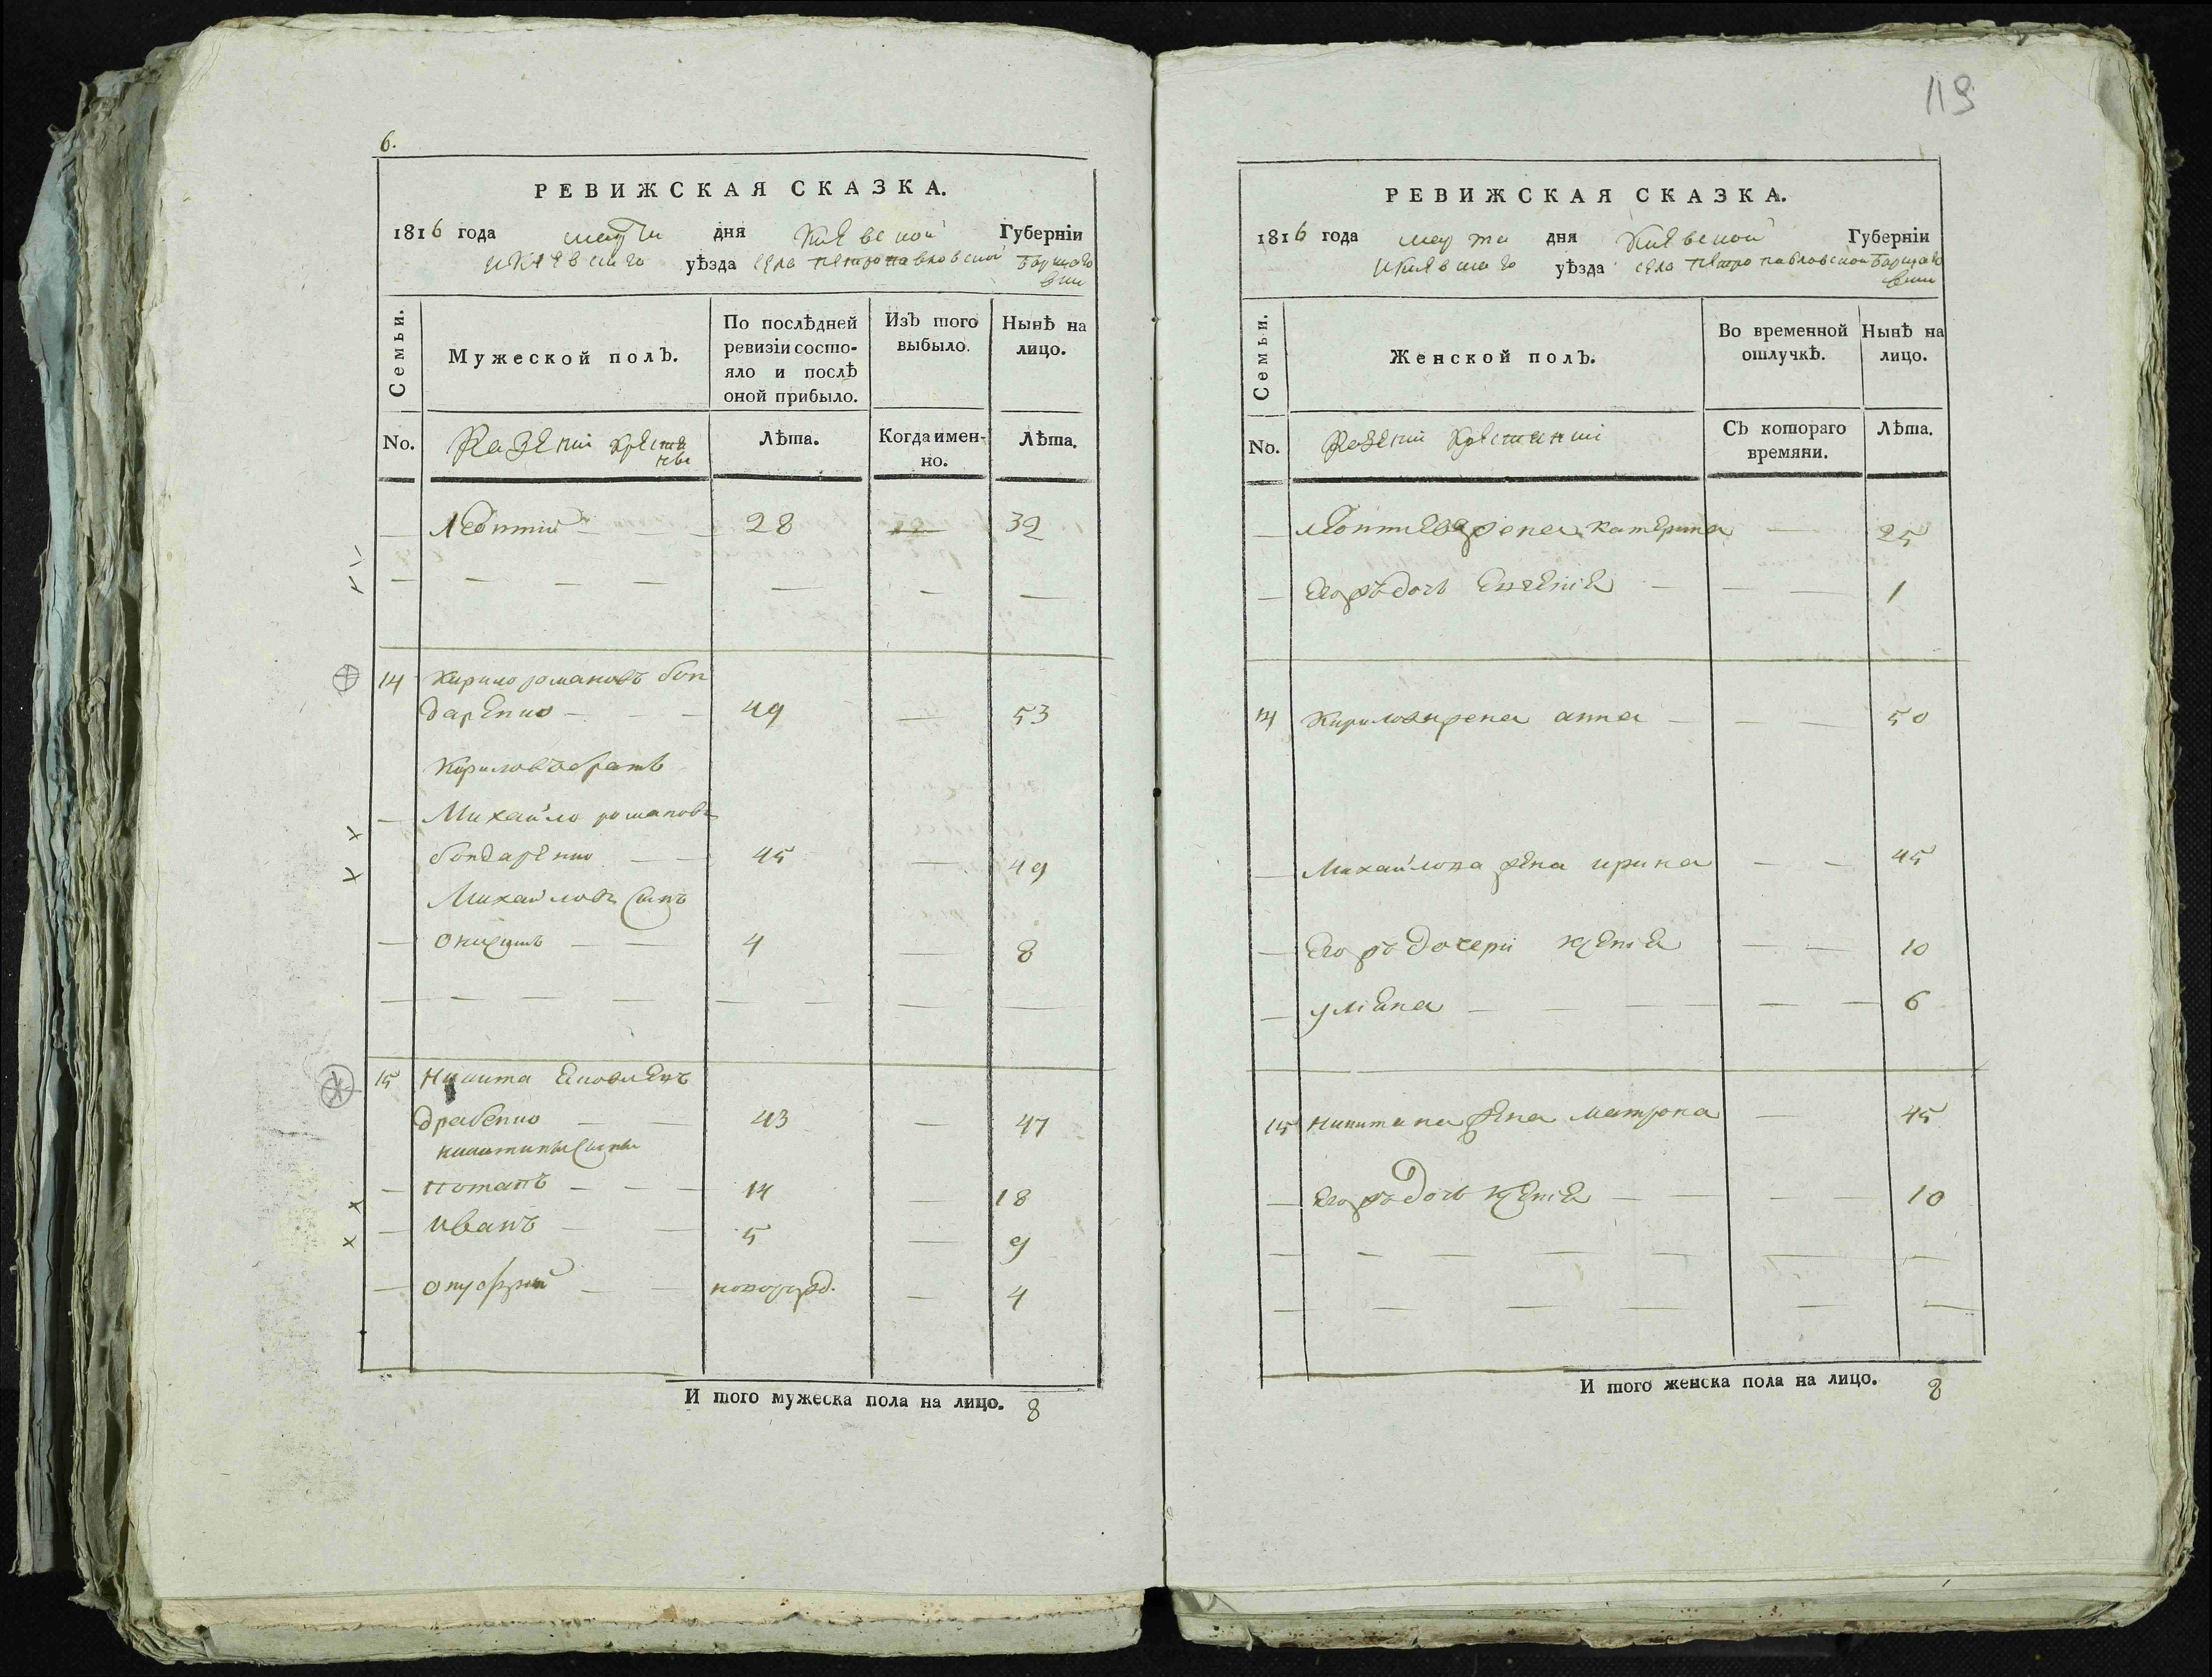 6.
РЕВИЖСКАЯ СКАЗКА.
1816 года марта дня Киевской Губерніи
и Киевскаго уѣзда села Петропавловской Борщаго
вки
Семьи.
Мужеской полъ.
По послѣдней
ревизіи состо-
яло и послѣ
оной прибыло.
Изъ того
выбыло.
Нынѣ на
лицо.
No.
Казении крестя
не
Лѣта.
Когда имен-
но.
Лѣта.
Леонтий 28 32
14 Кирило романовъ бон
даренко 49 53
Кириловъ братъ
Михайло романовъ
бондаренко 45 49
Михайловъ сынъ
4 8
15 Никита
драбенко 43 47
никитины сыны
Потапъ 14 18
Иванъ 5 9
Онуфрий новорожд. 4
И того мужеска пола на лицо. 8
119
РЕВИЖСКАЯ СКАЗКА.
1816 года марта дня Киевской Губерніи
и Киевскаго уѣзда села Петропавловской Борщаго
вки
Семьи.
Женской полъ.
Во временной
отлучкѣ.
Нынѣ на
лицо.
No.
Казении крестянки
Съ котораго
времяни.
Лѣта.
Леонтиева жена катерина 25
Его жъ дочь 1
14 Кирилова жена анна 50
Михайлова жена ирина 45
Его жъ дочери ксения 10
улияна 6
15 Никитина жена матрона 45
Его жъ дочь ксения 10
И того женска пола на лицо. 8